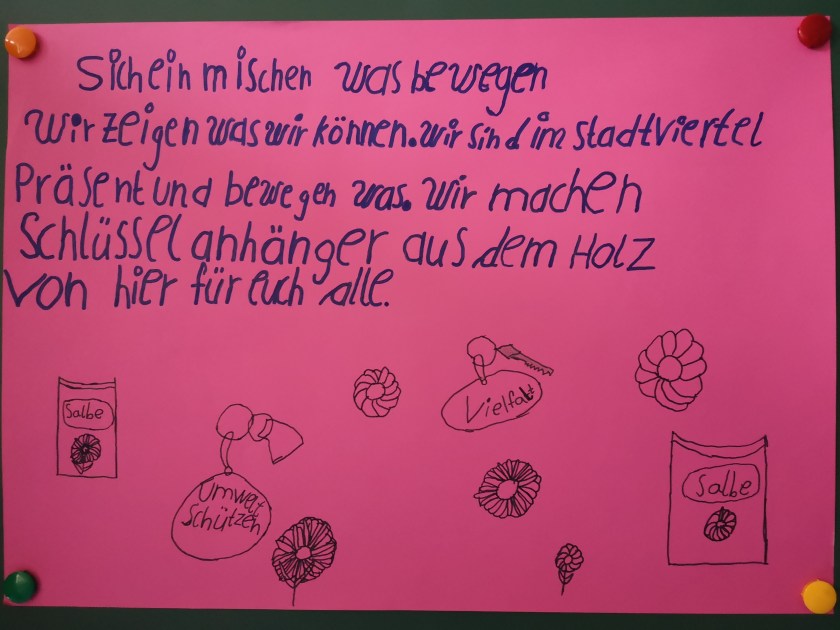 Sich ein mischen was bewegen
Wir zeigen was wir können. Wir sind im Stadtviertel
Präsent und bewegen was. Wir machen
Schlüssel anhänger aus dem Holz
von hier für euch alle.
Salbe
Vielfalt
Umwelt
Schützen
Salbe